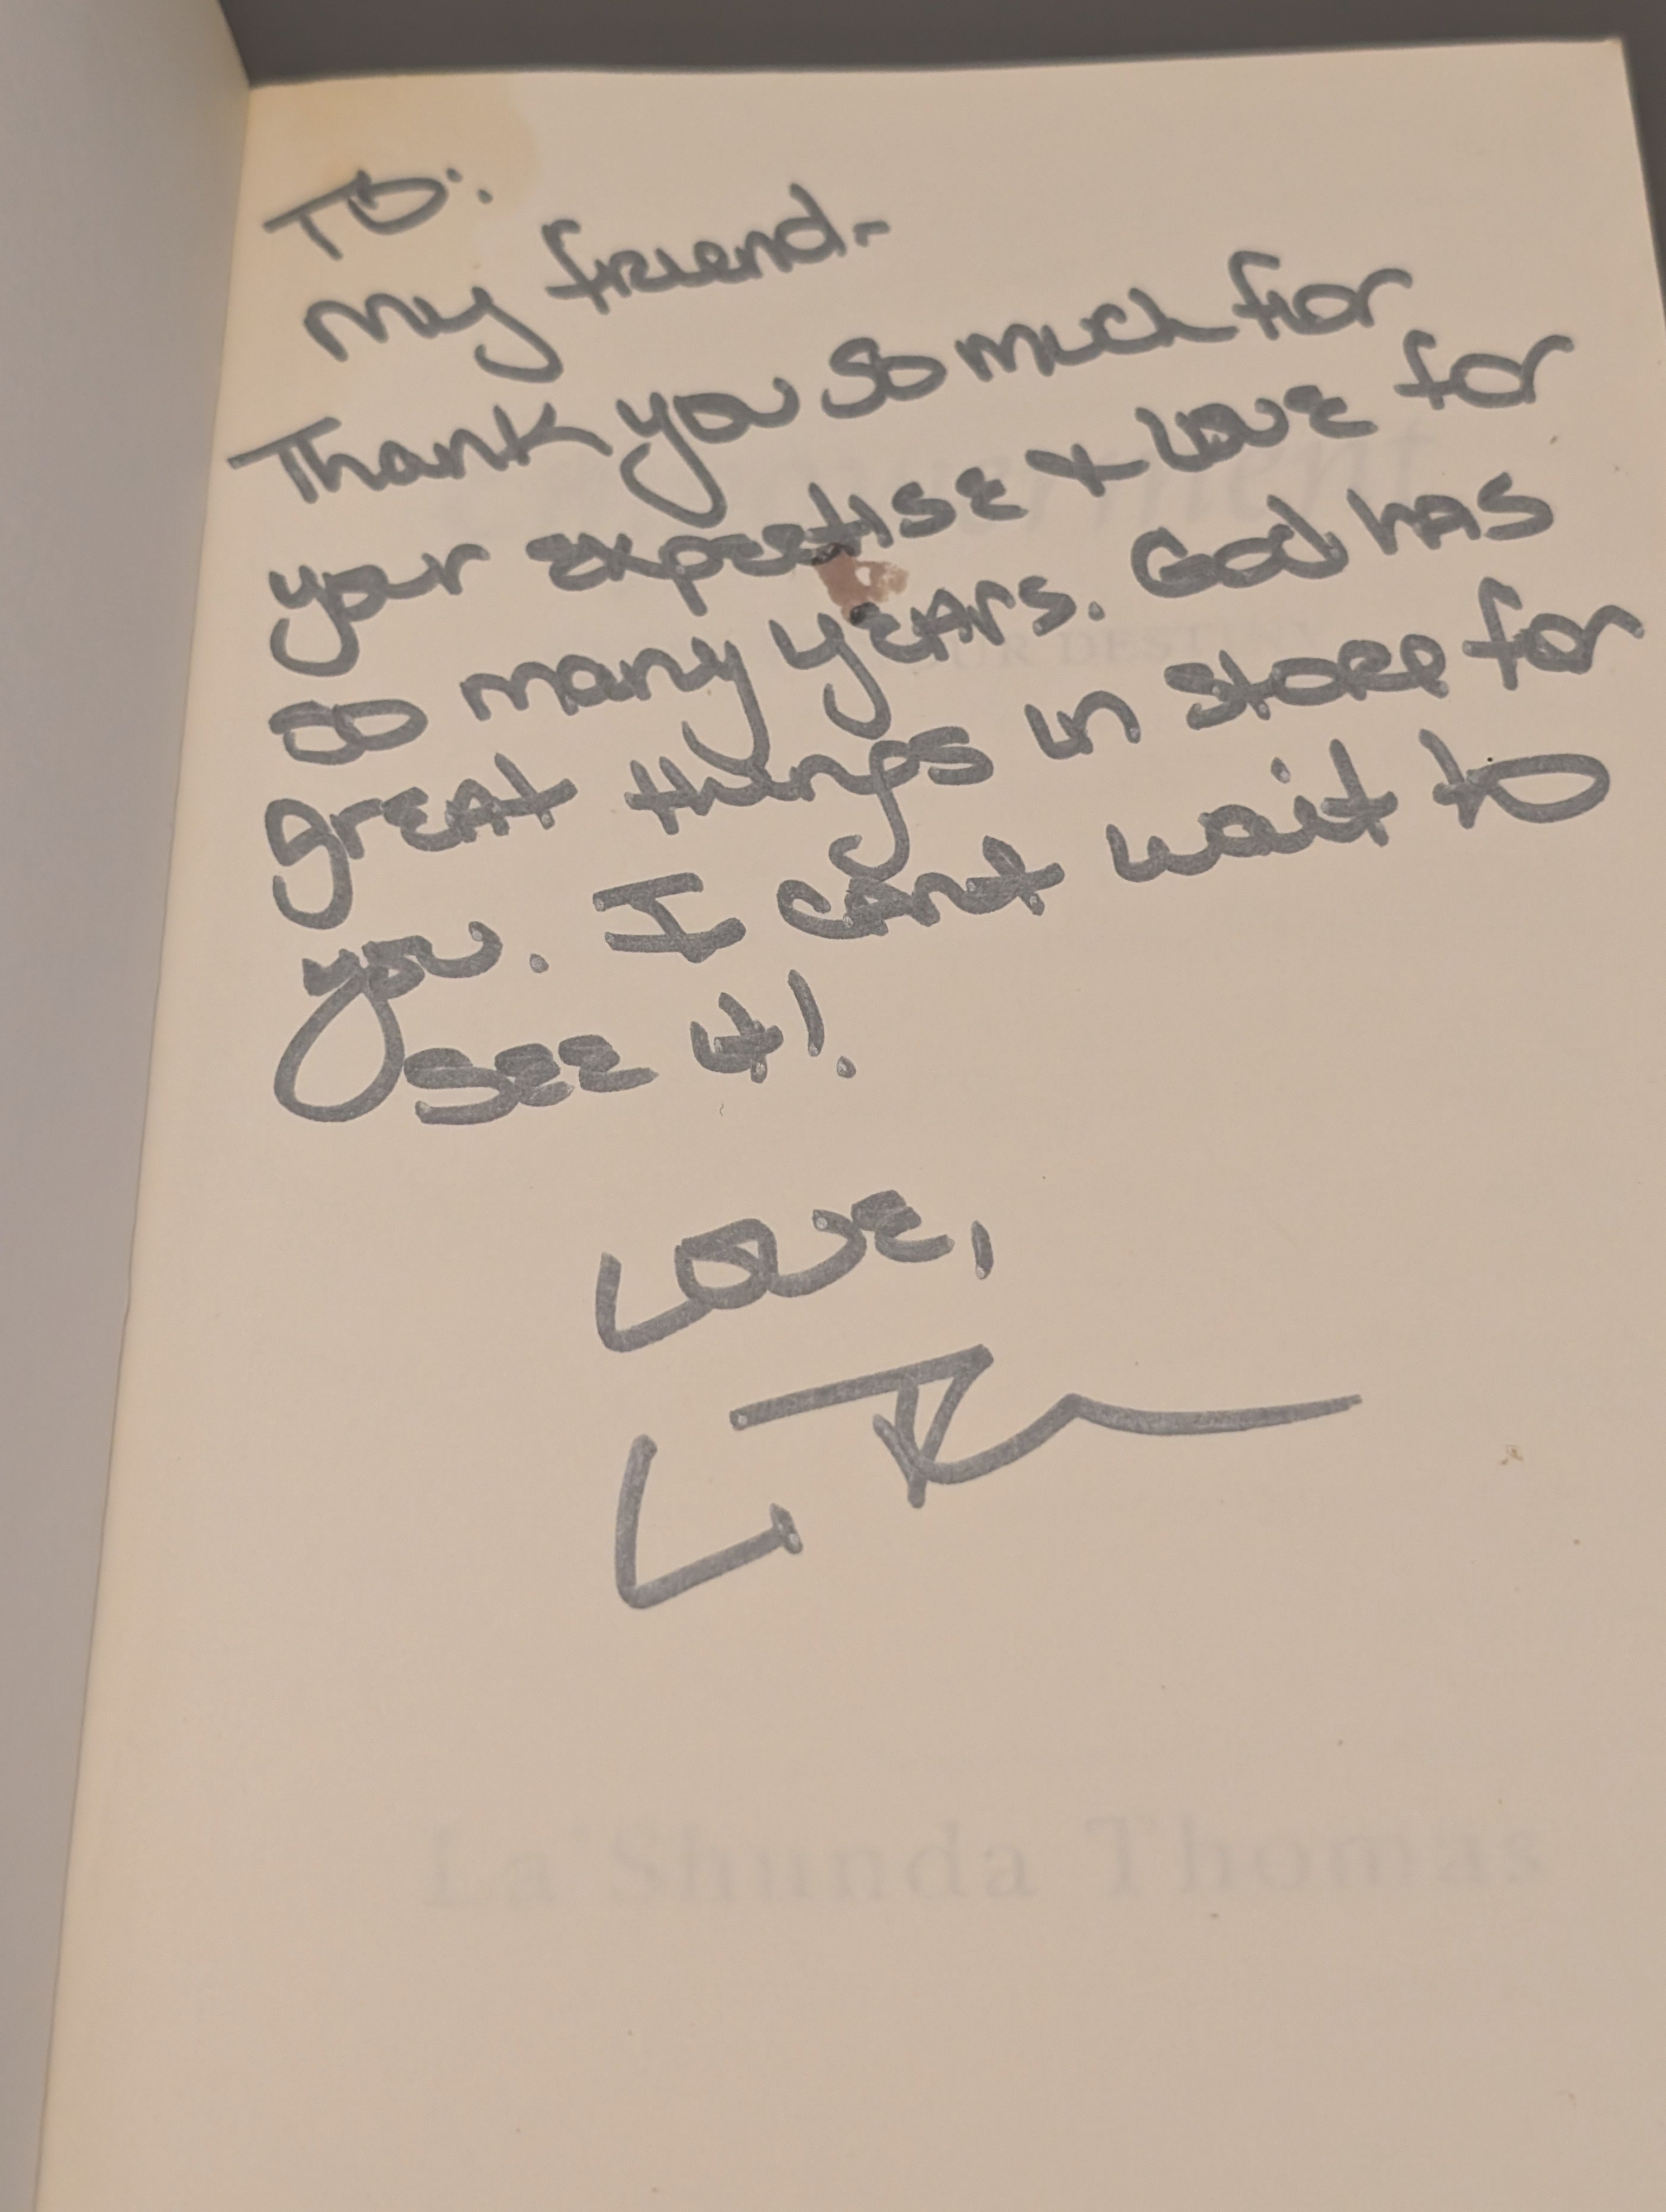 TO:
My friend-
Thank you so much for
your expertise & Love for
so many years. God has
great things in store for
you. I cant wait to
see it!
Love,
OUR DESTINY
La'Shunda Thomas